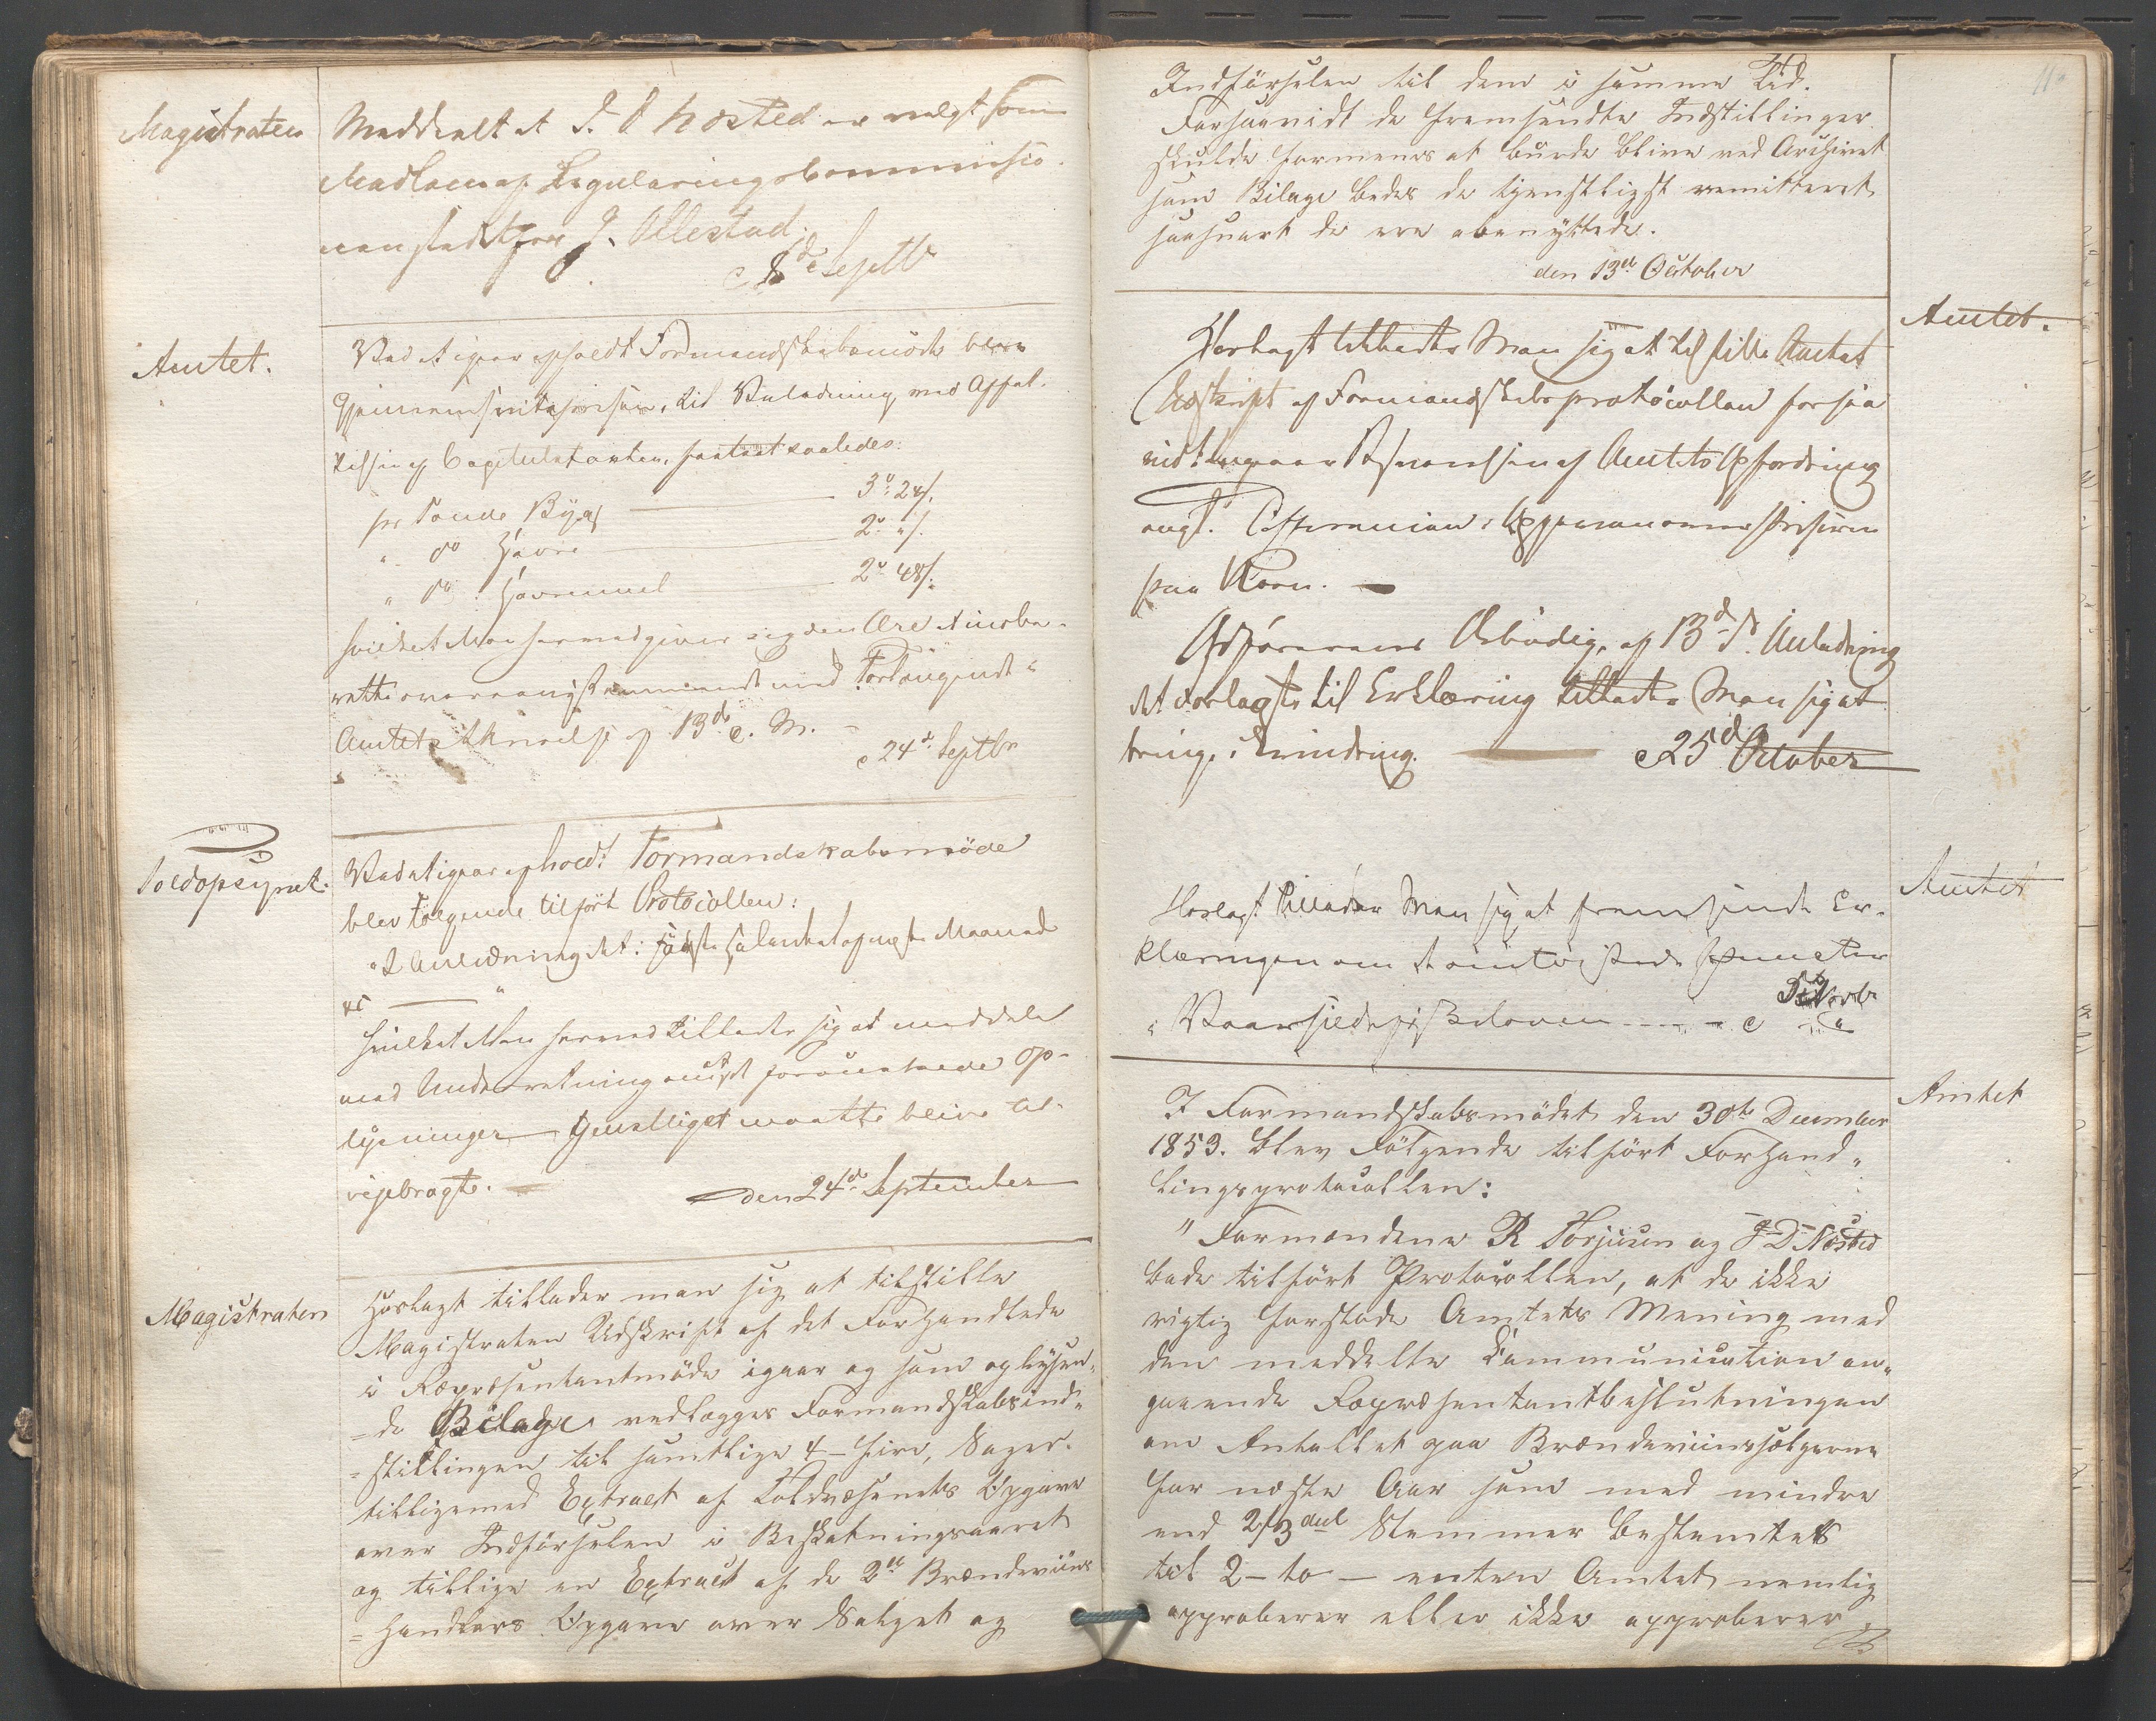 Magistraten
Meddeelt at J. D Næsted er valgt som
Medlem af Reguleringscommissio-
nen istedetfor J. Ollestad.
8de Septb
Amtet.
Ved et igaar afholdt Formandskabsmöde bleve
Gjennemsnitspriserne, til Veiledning ved Afhol-
telsen af Capitulationer, fastsat saaledes:
pr Tönde Byg 3 24
" do Havre 2 "
" do Havremeel 2 48
hvilket Man hermed giver sig den Ære at indbe-
rette overeensstemmende med Forlangende i
Amtets Skrivelse af 13de d. M.
24de Septbr
Toldopsynet.
Ved et igaar afholdt Formandskabsmöde
blev Fölgende tilfört Protocollen:
"I Anledning det: næste Maaned
hvilket Man herved tillader sig at meddele
med Underretning forventede Op-
lysninger gunstligst maatte blive til-
vejebragt.
den 24de September
Magistraten
Hoslagt tillader man sig at tilstille
Magistraten Udskrift af det Forhandlede
i Repræsentantmöde igaar og som oplysen-
=de Bilage vedlægges Formandskabsind-
=stillingen til samtlige 4 - fire, Sager.
tilligemed Extract af Toldvæsenets Opgave
over Indförselen i Beskatningsaaret
og tillige en Extract af de 2de Brændeviins
=handlers Opgave over Salget og
11
Indförselen til dem i samme Tid.
Forsaavidt de fremsendte Indstillinger
skulde formenes at burde blive ved Archivet
som Bilage bedes de tjenstligst remitteret
saasnart de ere afbenyttede.
den 13de October
Amtet.
Hoslagt tillader Man sig at tilstille Amtet
Udskrift af Formandskabsprotocollen forsaa
vidt angaar Besvarelsen af Amtets Opfordring
angd.
paa Korn.
Ordförerens Ærbödig. af 13de d. Anledning
det forlagte til Erklæring tillader Man sig at
bringe i Erindring.
25de October
Amtet
Hoslagt tillader Man sig at fremsende Er-
klæringen om de omtvistede Puncter
i Vaarsildefiskeloven Novbr
Amtet
I Formandskabsmödet den 30te December
1853. blev Fölgende tilfört Forhand-
lingsprotocollen:
" Formændene R Torjusen og J D Næsted
bade tilfört Protocollen, at de ikke
rigtig forstode Amtets Mening med
den meddelte Communication an-
gaaende Repræsentantbeslutningen
om Antallet paa Brændeviinssælgerne
for næste Aar som med mindre
end 2/3 deel Stemmer bestemtes
til 2 - to - enten Amtet nemlig
approberer eller ikke approberer